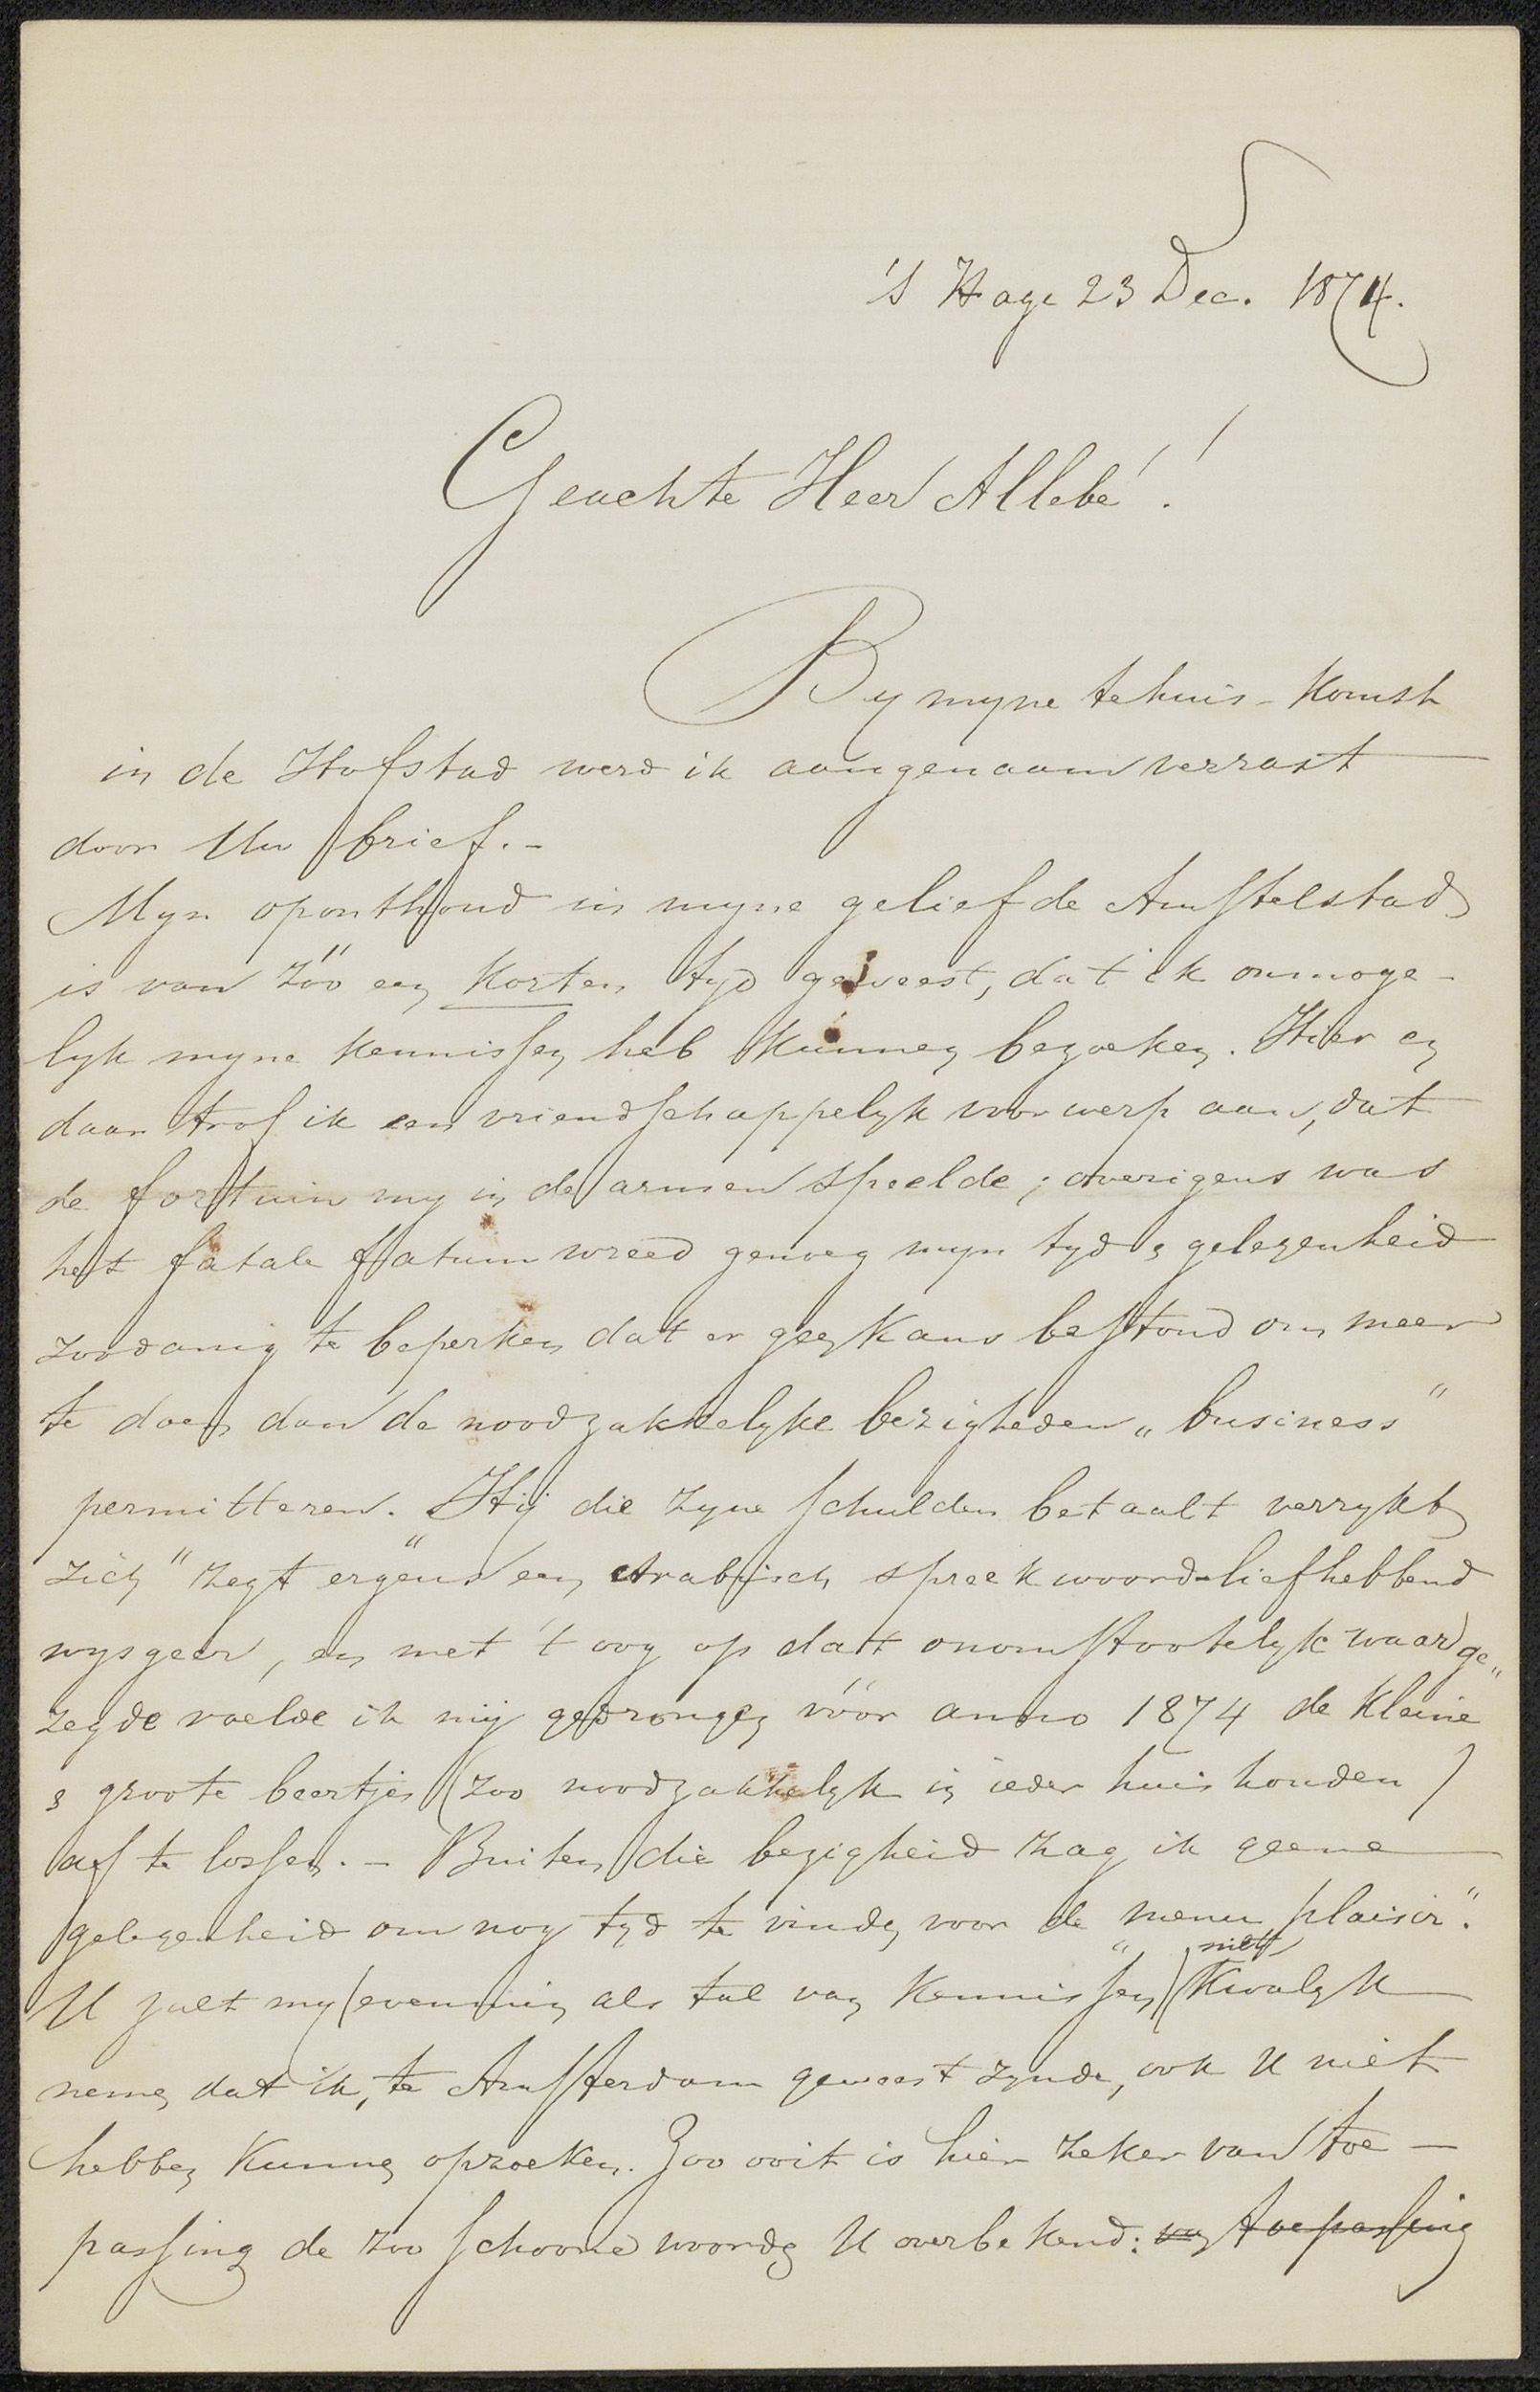 's Hage 23 Dec. 1874.
Geachte Heer Allebé!
By myne tehuis-komst
in de Hofstad werd ik aangenaam verrast
door Uw brief. -
Myn oponthoud in myne geliefde Amstelstad
is van zóó een korten tyd geweest, dat ik onmoge-
lyk myne kennissen heb kunnen bezoeken. Hier en
daar trof ik een vriendschappelyk voorwerp aan, dat
de fortuin my in de armen speelde; overigens was
het fatale fatum wreed genoeg myn tyd & gelegenheid
zoodanig te beperken dat er geen kans bestond om meer
te doen dan de noodzakkelyke bezigheden „business"
permitteren. „Hij die zyne schulden betaalt verrykt
zich" zegt ergens een Arabisch spreekwoord-liefhebbend
wysgeer, en met 't oog op dat onomstootelyk waar ge„
zegde voelde ik mij gedrongen vóór anno 1874 de kleine
& groote beertjes (zoo noodzakkelyk in ieder huishouden)
af te lossen. - Buiten die bezigheid zag ik geene
gelegenheid om nog tyd te vinden voor de „menu plaisir".
U zult my (evenmin als tal van kennissen) niet kwalyk
nemen dat ik, te Amsterdam geweest zynde, ook U niet
hebben kunnen opzoeken. Zoo ooit is hier zeker van toe-
passing de zoo schoone woorden U overbekend: van toepassing